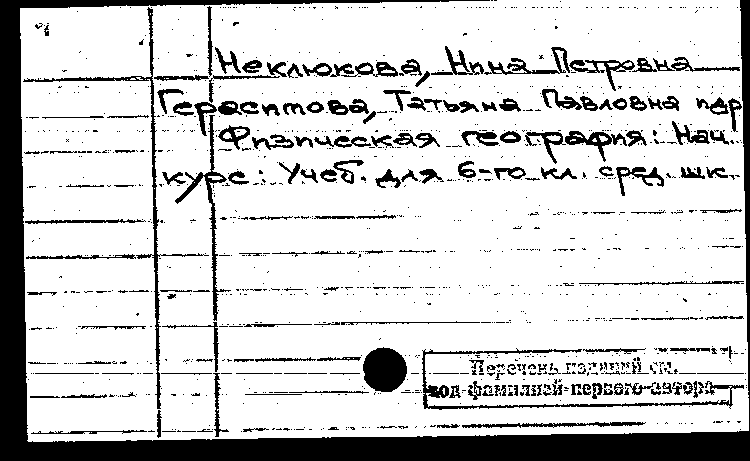 Неклюкова, Нина Петровна
Герасимова, Татьяна Павловна и др
Физическая география: Нач.
курс: Учеб. для 6-го кл. сред. шк.
Перечень изданий см.
под фамилией первого автора